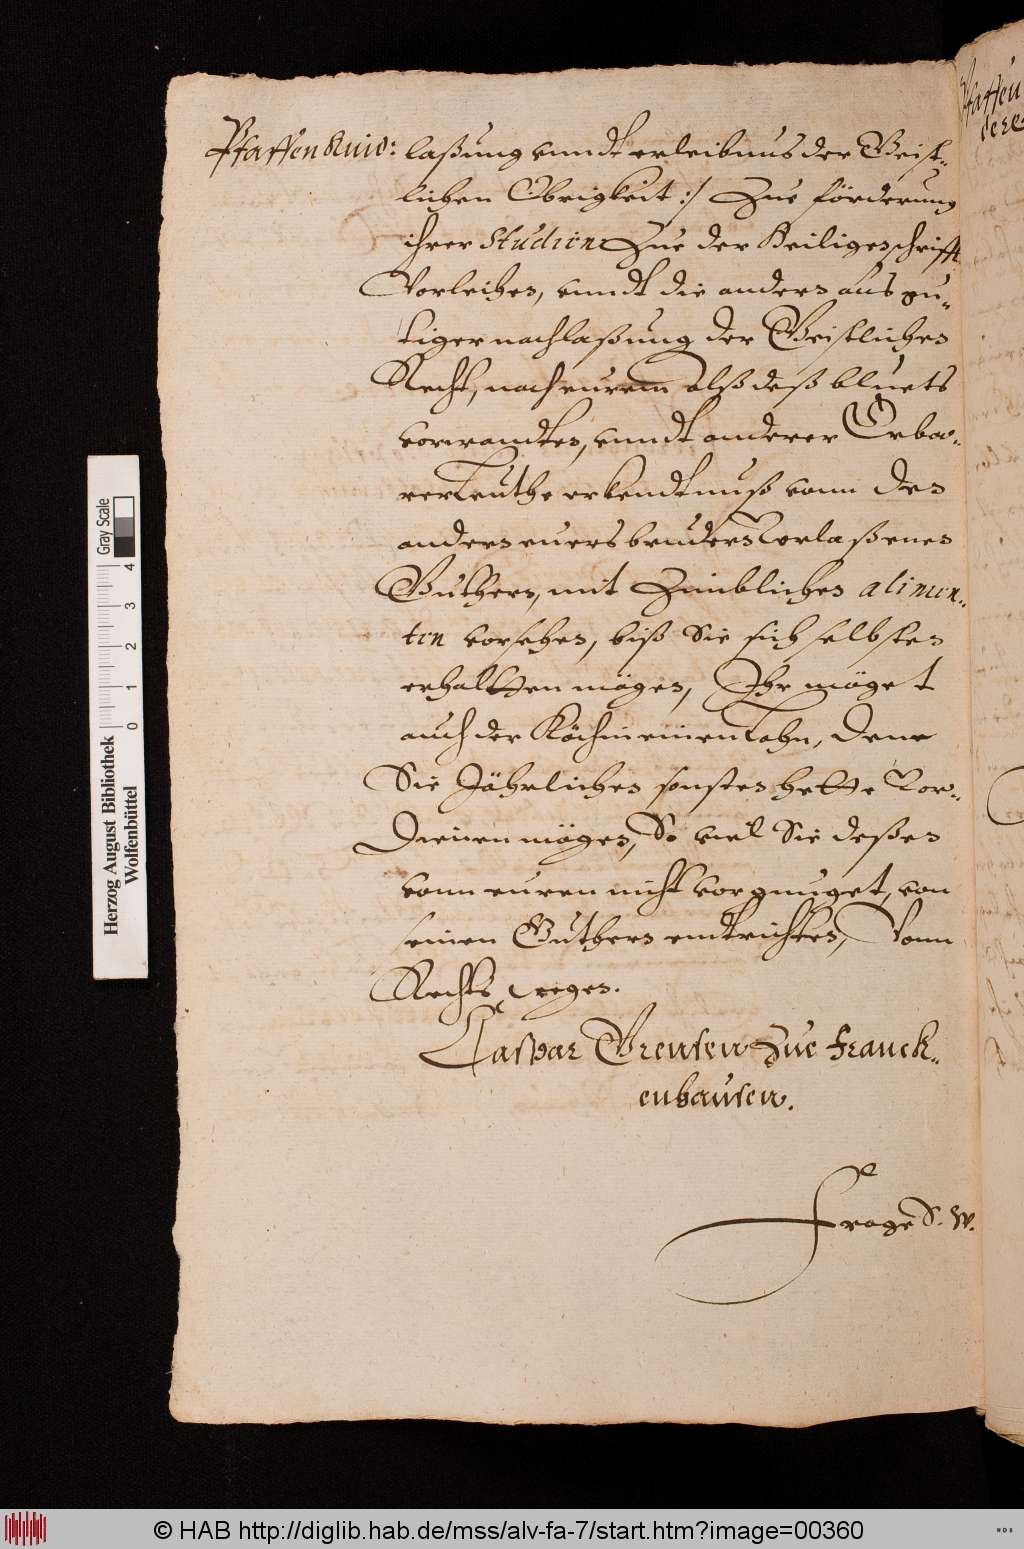 Pfaffen Kind: laßung vnndt erleibnus der Geist-
lichen Obrigkeit :/ Zue förderung
ihrer Studien Zue der Heiligen schrifft
Vorleihen, vnndt die andern aus gu-
tiger nachlaßung der Geistlichen
Recht, nach eurem alß deß bluets
vorwandten, vnndt anderer Erba-
rer Leuthe erkendtnuß vonn des
andern euers bruders Vorlaßenen
Guthern, mit Zimblichen alimen-
ten vorsehen, biß Sie sich selbsten
erhaltten mögen, Ihr möget
auch der Köchin einen Lohn, denn
Sie Jährlichen sonsten hette Vor-
Dienen mögen, So viel Sie deßen
vonn euren nicht vorgnuget, von
seinen Guthern endtrichten, Vonn
Rechts wegen.
Caspar Grensen Zue Franck-
enhausen.
Frage D. W.
Pfaffen
dere
Herzog August Bibliothek
Wolfenbüttel
0 1 2 3 4
Gray Scale
© HAB http://diglib.hab.de/mss/alv-fa-7/start.htm?image=00360